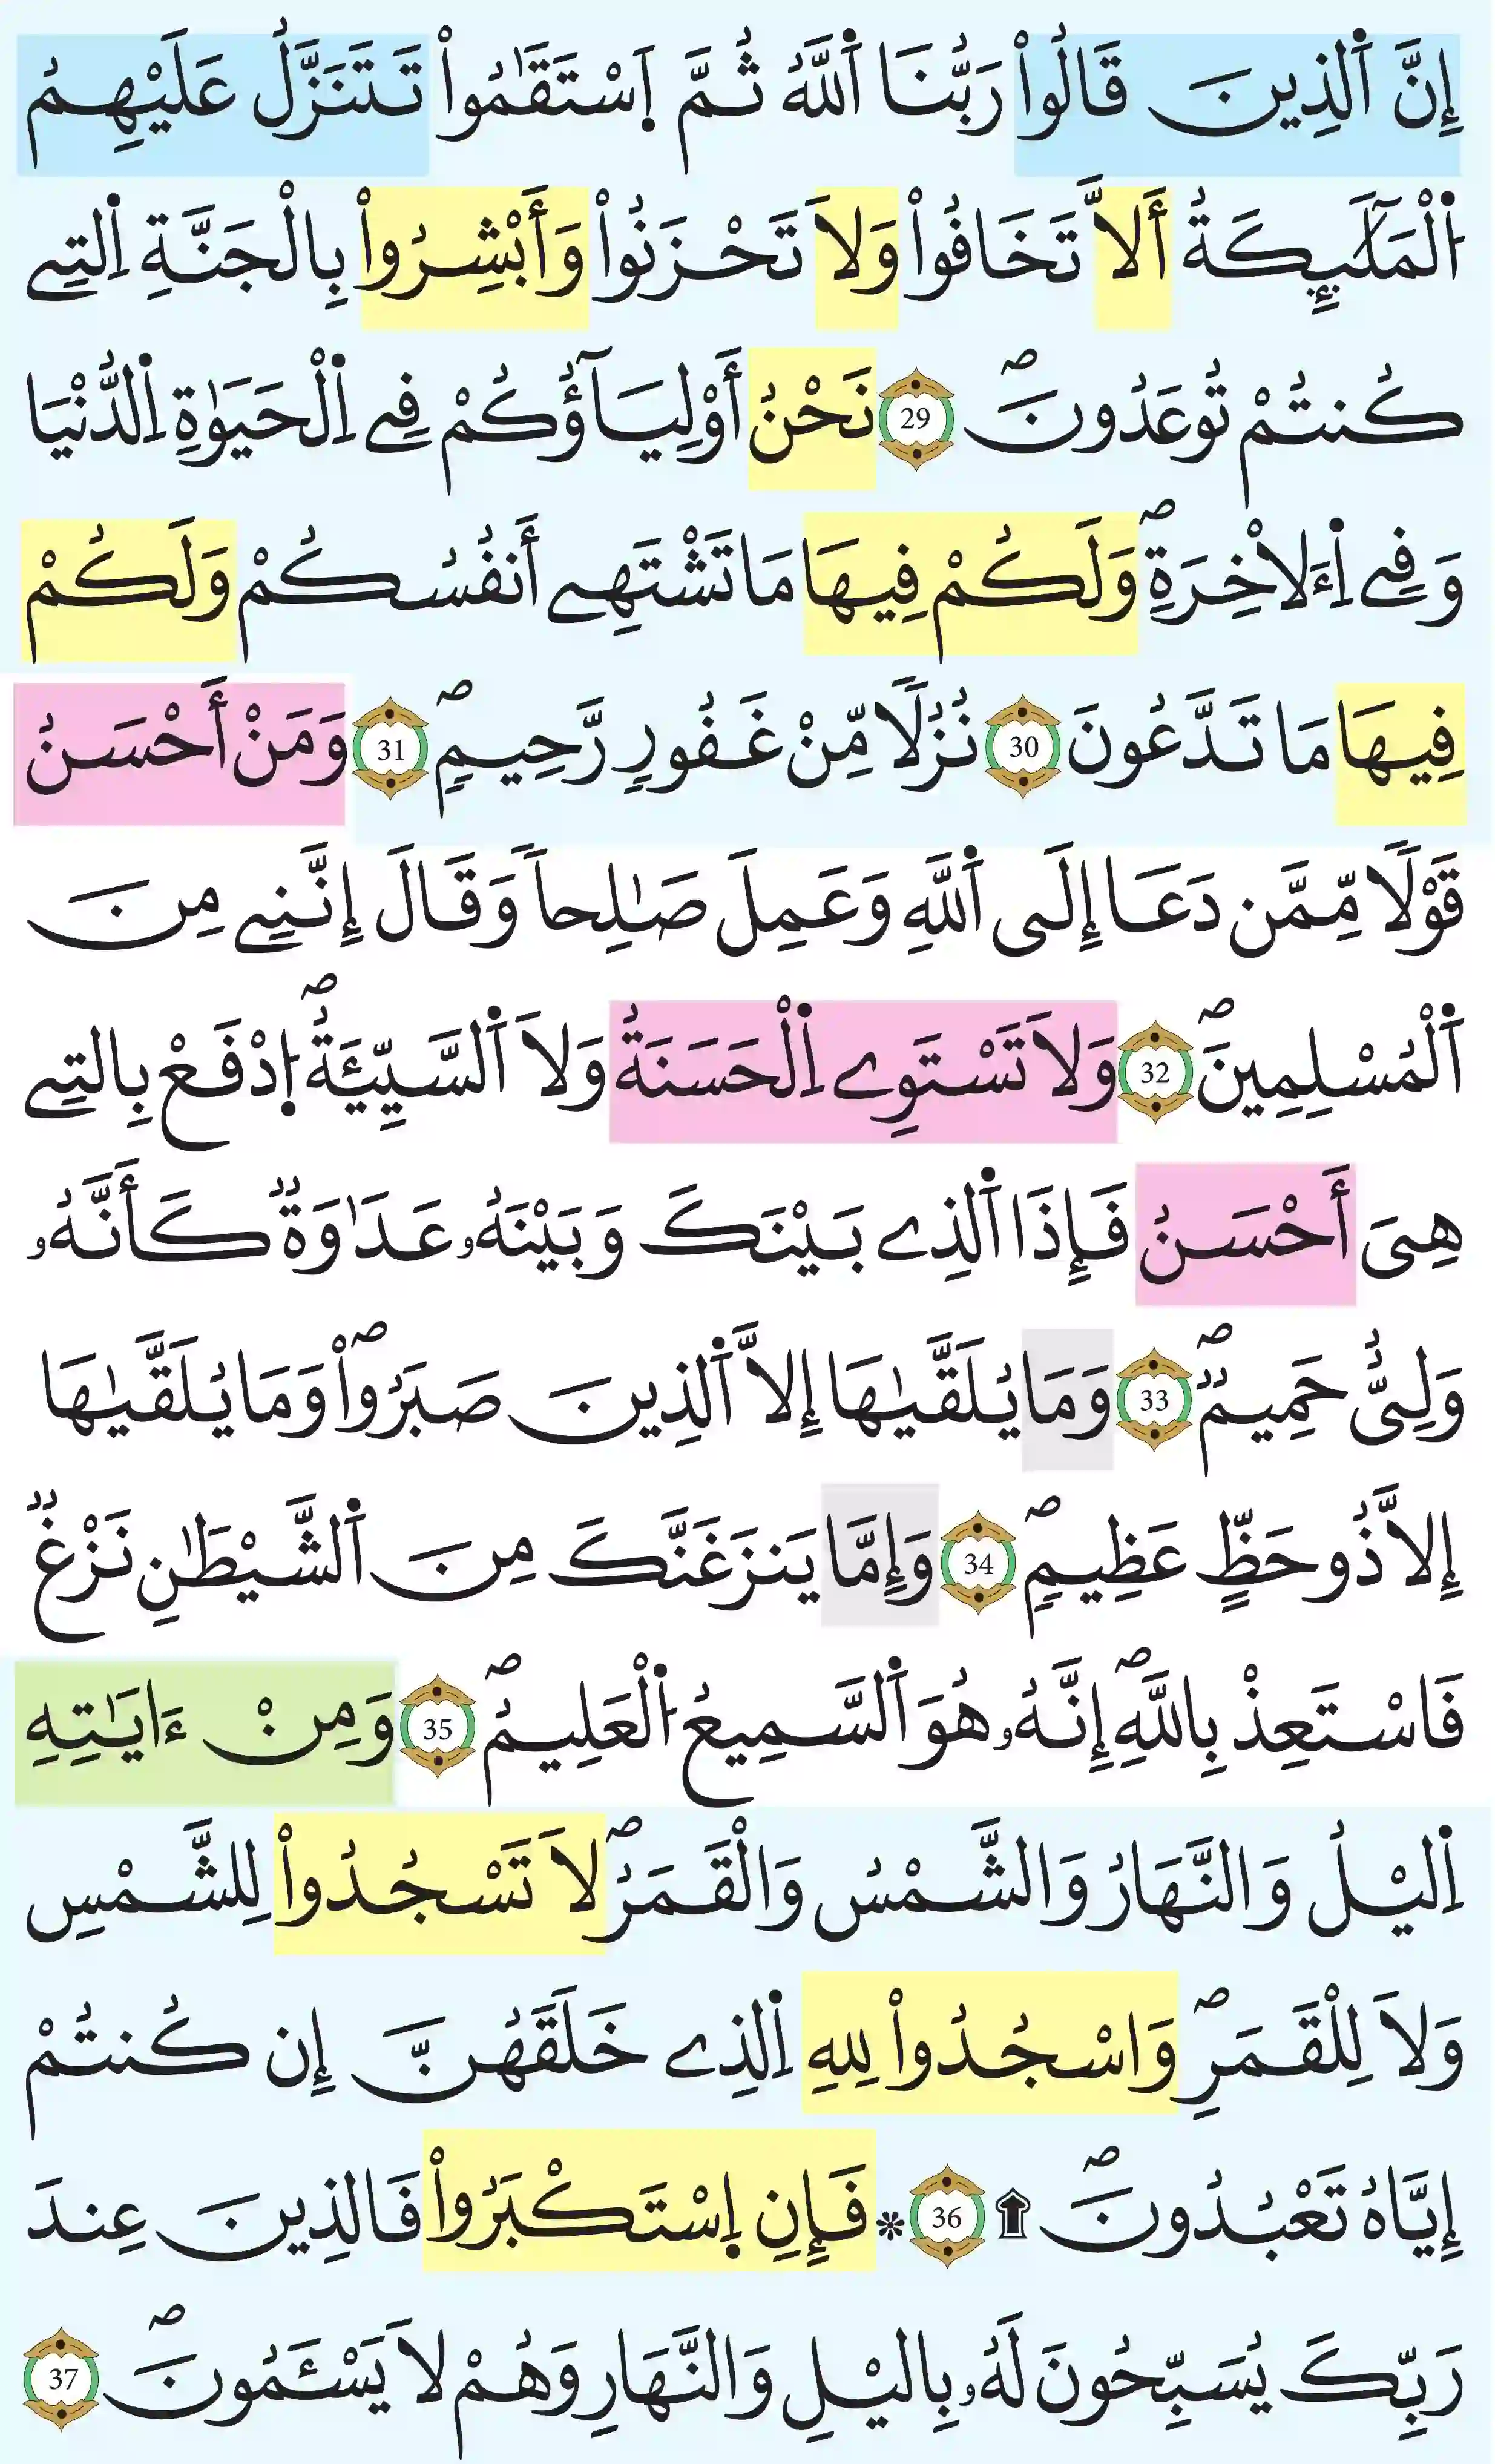 إِنَّ اَ۬لذِينَ قَالُواْ رَبُّنَا اَ۬للَّهُ ثُمَّ اَ۪سْتَقَٰمُواْ تَتَنَزَّلُ عَلَيْهِمُ
اُ۬لْمَلَٰٓئِكَةُ أَلاَّ تَخَافُواْ وَلاَ تَحْزَنُواْ وَأَبْشِرُواْ بِالْجَنَّةِ اِ۬لتِے
كُنتُمْ تُوعَدُونَۖ 29 نَحْنُ أَوْلِيَآؤُكُمْ فِے اِ۬لْحَيَوٰةِ اِ۬لدُّنْيَا
وَفِے اِ۬ءَلاْخِرَةِۖ وَلَكُمْ فِيهَا مَا تَشْتَهِے أَنفُسُكُمْ وَلَكُمْ
فِيهَا مَا تَدَّعُونَ 30 نُزُلًا مِّنْ غَفُورٖ رَّحِيمٖۖ 31 وَمَنْ أَحْسَنُ
قَوْلًا مِّمَّن دَعَا إِلَى اَ۬للَّهِ وَعَمِلَ صَٰلِحاً وَقَالَ إِنَّنِے مِنَ
اَ۬لْمُسْلِمِينَۖ 32 وَلاَ تَسْتَوِے اِ۬لْحَسَنَةُ وَلاَ اَ۬لسَّيِّئَةُۖ اُ۪دْفَعْ بِالتِے
هِىَ أَحْسَنُ فَإِذَا اَ۬لذِے بَيْنَكَ وَبَيْنَهُۥ عَدَٰوَةٞ كَأَنَّهُۥ
وَلِىٌّ حَمِيمٞۖ 33 وَمَا يُلَقَّيٰهَا إِلاَّ اَ۬لذِينَ صَبَرُواْۖ وَمَا يُلَقَّيٰهَا
إِلاَّ ذُو حَظٍّ عَظِيمٖۖ 34 وَإِمَّا يَنزَغَنَّكَ مِنَ اَ۬لشَّيْطَٰنِ نَزْغٞ
فَاسْتَعِذْ بِاللَّهِۖ إِنَّهُۥ هُوَ اَ۬لسَّمِيعُ اُ۬لْعَلِيمُۖ 35 وَمِنْ ءَايَٰتِهِ
اِ۬ليْلُ وَالنَّهَارُ وَالشَّمْسُ وَالْقَمَرُۖ لاَ تَسْجُدُواْ لِلشَّمْسِ
وَلاَ لِلْقَمَرِۖ وَاسْجُدُواْ لِلهِ اِ۬لذِے خَلَقَهُنَّ إِن كُنتُمْ
إِيَّاهُ تَعْبُدُونَۖ ۩ 36 * فَإِنِ اِ۪سْتَكْبَرُواْ فَالذِينَ عِندَ
رَبِّكَ يُسَبِّحُونَ لَهُۥ بِاليْلِ وَالنَّهَارِ وَهُمْ لاَ يَسْـَٔمُونَۖ 37